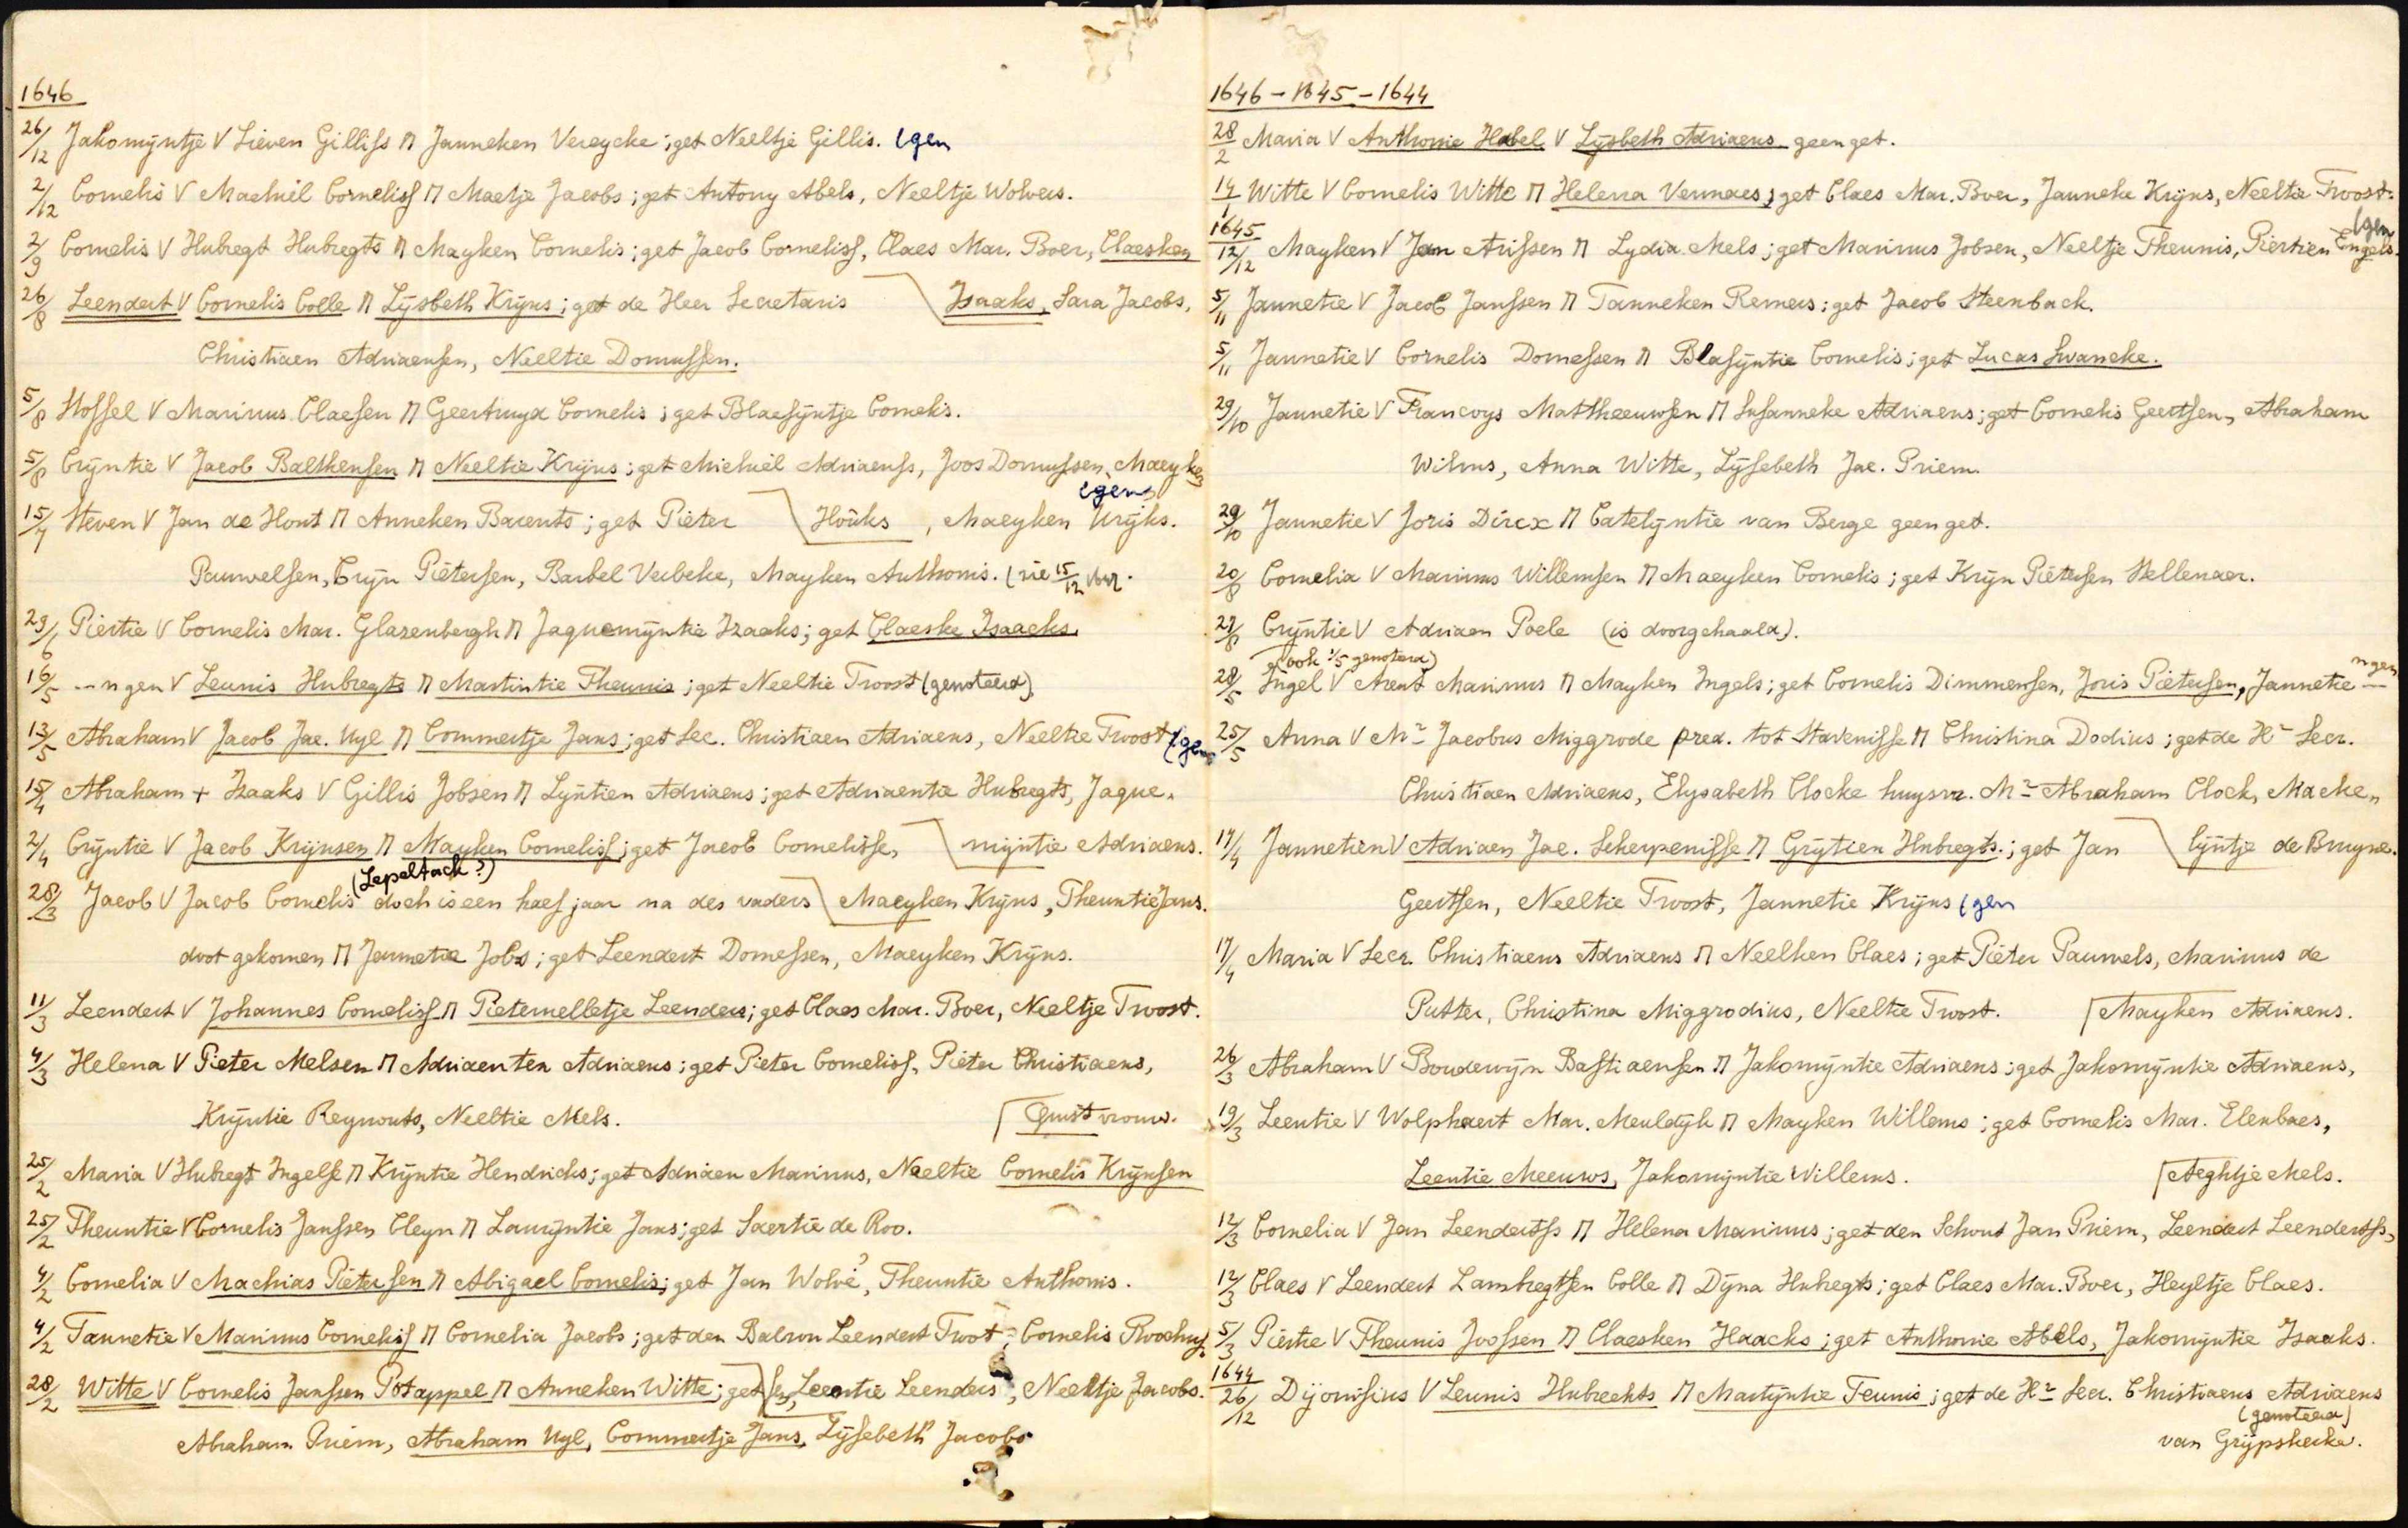 1646
26/12 Jakomÿntje V Lieven Gilliss П Janneken Vereycke ; get Neeltje Gillis. (gen
2/12 Cornelis V Machiël Corneliss П Maetje Jacobs ; get Antony Abels, Neeltje Wolvers.
2/9 Cornelis V Hubregt Hubregts П Mayken Cornelis ; get Jacob Corneliss, Claes Mar. Boer, Claesken
26/8 Leendert V Cornelis Colle П Lÿsbeth Krÿns ; get de Heer Secretaris \ Isaaks, Sara Jacobs,
Christiaen Adriaensen, Neeltie Domussen.
5/8 Stoffel V Marinus Claesen П Geertruyd Cornelis ; get Blaesÿntje Cornelis.
5/8 Crÿntie V Jacob Balthensen П Neeltie Krÿns ; get Michiël Adriaenss, Joos Domussen, Maeyken
(gen)
15/7 Steven V Jan de Hont П Anneken Barents ; get Pieter \ Hoüks , Maeyken Krÿks.
Pauwelsen, Crÿn Piëtersen, Barbel Verbeke, Mayken Anthonis. (zie 15/12
29/6 Piertie V Cornelis Mar. Glazenbergh П Jaquemÿntie Izaaks ; get Claeske Isaacks.
16/5 ...ngen V Leunis Hubregts П Martintie Theunis ; get Neeltie Troost (genoteerd)
13/5 Abraham V Jacob Jac. Uyl П Commertje Jans ; get Sec. Christiaen Adriaens, Neeltie Troost (gen
15/4 Abraham + Izaaks V Gillis Jobsen П Lÿntien Adriaens ; get Adriaentie Hubregts, Jaque-
2/4 Crÿntie V Jacob Krÿnsen П Mayken Corneliss ; get Jacob Cornelisse, \ mÿntie Adriaens.
(Lepeltack ?)
28/3 Jacob V Jacob Cornelis doch is een haef jaar na des vaders \ Maeyken Krÿns, Theuntie Jans.
doot gekomen П Jannetie Jobs ; get Leendert Domessen, Maeyken Krÿns.
11/3 Leendert V Johannes Corneliss П Pieternelletje Leenders ; get Claes Mar. Boer, Neeltje Troost.
4/3 Helena V Pieter Melsen П Adriaenten Adriaens ; get Pieter Corneliss, Piëter Christiaens,
Krÿntie Reynouts, Neeltie Mels. [ Quist vrouw.
25/2 Maria V Hubregt Ingelse П Krÿntie Hendricks ; get Adriaen Marinus, Neeltie Cornelis Krÿnsen
25/2 Theuntie V Cornelis Janssen Cleyn П Laurÿntie Jans ; get Saertie de Roo.
4/2 Cornelia V Machias Piëtersen П Abigael Cornelis ; get Jan Wolvé ?, Theuntie Anthonis.
4/2 Tannetie V Marinus Corneliss П Cornelia Jacobs ; get den Balson Leendert Troot, Cornelis Roochuy-
28/2 Witte V Cornelis Janssen Potappel П Anneken Witte ; get sen, Leentie Leenders, Neeltje Jacobs.
Abraham Priem, Abraham Uyl, Commertje Jans, Lÿsebeth Jacobs
1646 - 1645 - 1644
28/2 Maria V Anthonie Habel V Lÿsbeth Adriaens geen get.
14/1 Witte V Cornelis Witte П Helena Vermaes ; get Claes Mar. Boer, Janneke Krÿns, Neeltie Troost.
(gen
1645
12/12 Mayken V Jan Arissen П Lydia Mels ; get Marinus Jobsen, Neeltje Theunis, Piertien Engels.
5/11 Jannetie V Jacob Janssen П Tanneken Remeus ; get Jacob Steenback.
5/11 Jannetie V Cornelis Domessen П Blasÿntie Cornelis ; get Lucas Swancke.
29/10 Jannetie V Francoys Mattheeuwsen П Susanneke Adriaens ; get Cornelis Geertsen, Abraham
Wilms, Anna Witte, Lÿsebeth Jac. Priem.
29/10 Jannetie V Joris Dircx П Catelÿntie van Berge geen get.
20/8 Cornelia V Marinus Willemsen П Maeyken Cornelis ; get Krÿn Piëtersen Stellenaer.
27/8 Crÿntie V Adriaen Poele (is doorgehaald).
(ook 1/5 genoteerd)
28/5 Ingel V Arent Marinus П Mayken Ingels ; get Cornelis Dimmensen, Joris Piëtersen, Jannetie ...ngen
25/5 Anna V Mr Jacobus Miggrode pred. tot Stavenisse П Christina Dodius ; get de Hr Secr.
Christiaen Adriaens, Elysabeth Clocke huysvr. Mr Abraham Clock, Macke-
17/4 Jannetien V Adriaen Jac. Scherpenisse П Grÿtien Hubregts. ; get Jan \ lÿntje de Bruyne.
Geertsen, Neeltie Troost, Jannetie Krÿns (gen
17/4 Maria V Secr. Christiaens Adriaens П Neelken Claes ; get Piëter Pauwels, Marinus de
Putter, Christina Miggrodius, Neeltie Troost. [ Mayken Adriaens.
26/3 Abraham V Boudewÿn Bastiaensen П Jakomÿntie Adriaens ; get Jakomÿntie Adriaens,
19/3 Leentie V Wolphaert Mar. Meuldÿk П Mayken Willems ; get Cornelis Mar. Elenbaes,
Leentie Meeuws, Jakomÿntie Willems. [ Aeghtje Mels.
12/3 Cornelia V Jan Leendertss П Helena Marinus ; get den Schout Jan Priem, Leendert Leendertss,
12/3 Claes V Leendert Lambregtsen Colle П Dÿna Hubregts ; get Claes Mar. Boer, Heyltje Claes.
5/3 Piërtie V Theunis Joossen П Claesken Izaacks ; get Anthonie Abels, Jakomÿntie Isaaks.
1644
26/12 Dÿonisius V Leunis Hubrechts П Martÿntie Teunis ; get de Hr Secr. Christiaens Adriaens
(genoteerd)
van Grÿpskerke.